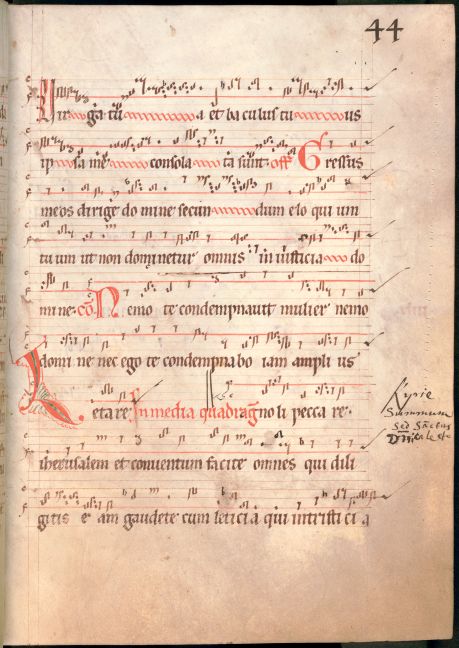 44
Uir ga tua a et ba culus tu us
ip sa me consola ta sunt. off Gressus
meos dirige do mine secun dum elo qui um
tu um ut non dominetur omnis in iusticia do
mi ne. co Nemo te condempnauit mulier nemo
domi ne nec ego te condempnabo iam ampli us
Letare In media quadrag noli pecca re.
Kyrie
Summum
iherusalem et conuentum facite omnes qui dili
gitis e am gaudete cum leticia qui intristi ci a